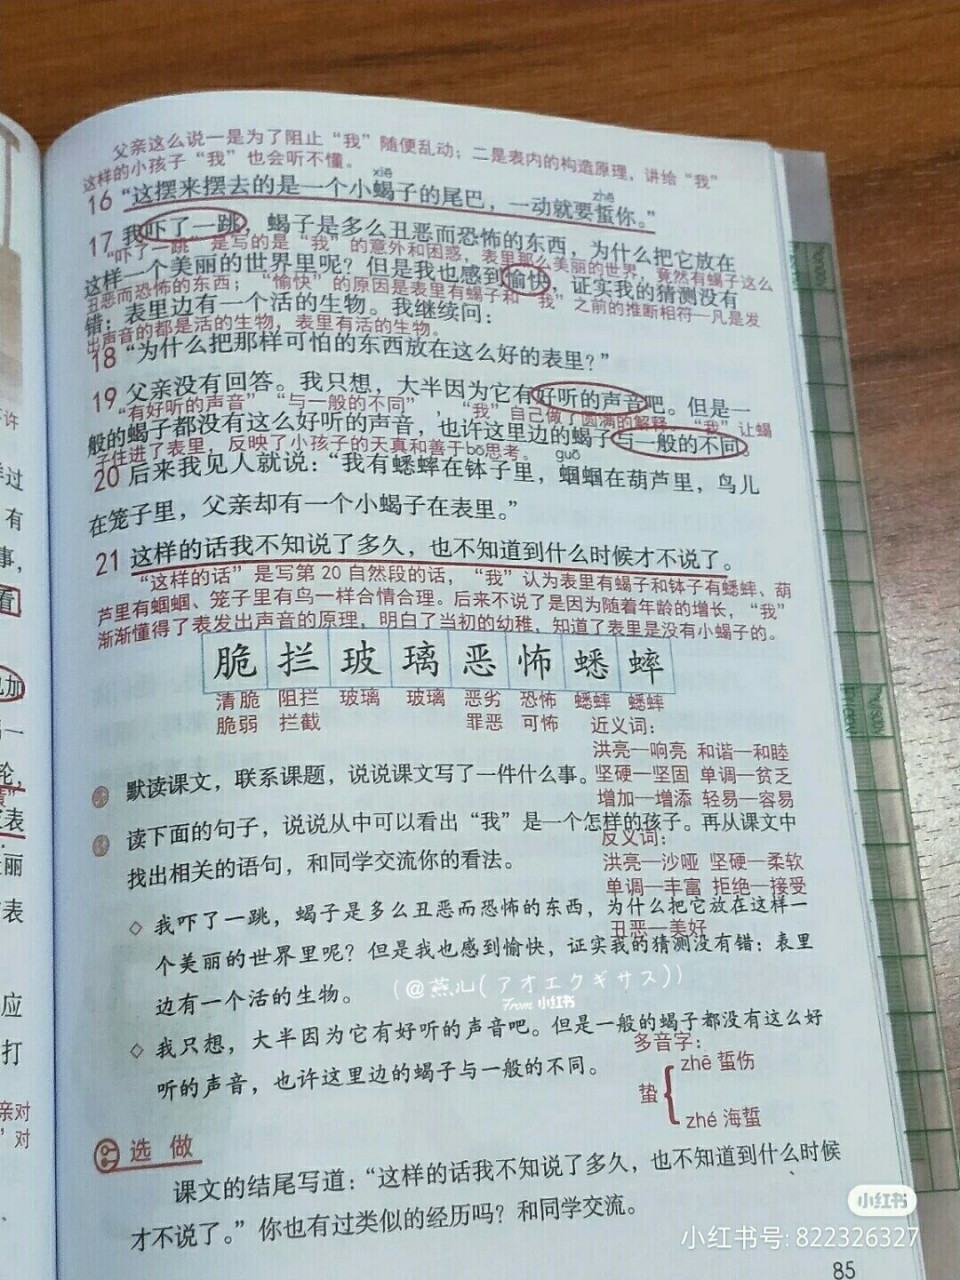 父亲这么说一是为了阻止“我”随便乱动；二是表内的构造原理，讲给“我”
这样的小孩子“我”也会听不懂。
xiē
zhē
16 “这摆来摆去的是一个小蝎子的尾巴，一动就要蜇你。”
17 我吓了一跳，蝎子是多么丑恶而恐怖的东西，为什么把它放在
“吓了一跳”是写的是“我”的意外和困惑，表里那么美丽的世界，竟然有蝎子这么
这样一个美丽的世界里呢？但是我也感到愉快，证实我的猜测没有
丑恶而恐怖的东西；“愉快”的原因是表里有蝎子和“我”之前的推断相符一凡是发
错：表里边有一个活的生物。我继续问：
出声音的都是活的生物，表里有活的生物。
18 “为什么把那样可怕的东西放在这么好的表里？”
19 父亲没有回答。我只想，大半因为它有好听的声音吧。但是一
“有好听的声音”“与一般的不同”，“我”自己做了圆满的解释。“我”让蝎
般的蝎子都没有这么好听的声音，也许这里边的蝎子与一般的不同。
子住进了表里，反映了小孩子的天真和善于思考。
bō
guō
20 后来我见人就说：“我有蟋蟀在钵子里，蝈蝈在葫芦里，鸟儿
在笼子里，父亲却有一个小蝎子在表里。”
21 这样的话我不知说了多久，也不知道到什么时候才不说了。
“这样的话”是写第20自然段的话，“我”认为表里有蝎子和钵子有蟋蟀、葫
芦里有蝈蝈、笼子里有鸟一样合情合理。后来不说了是因为随着年龄的增长，“我”
渐渐懂得了表发出声音的原理，明白了当初的幼稚，知道了表里是没有小蝎子的。
脆 拦 玻 璃 恶 怖 蟋 蟀
清脆 阻拦 玻璃 玻璃 恶劣 恐怖 蟋蟀 蟋蟀
脆弱 拦截 罪恶 可怖 近义词：
洪亮—响亮 和谐—和睦
默读课文，联系课题，说说课文写了一件什么事。
坚硬—坚固 单调—贫乏
增加—增添 轻易—容易
读下面的句子，说说从中可以看出“我”是一个怎样的孩子。再从课文中
反义词：
找出相关的语句，和同学交流你的看法。
洪亮—沙哑 坚硬—柔软
单调—丰富 拒绝—接受
◇ 我吓了一跳，蝎子是多么丑恶而恐怖的东西，为什么把它放在这样一
丑恶—美好
个美丽的世界里呢？但是我也感到愉快，证实我的猜测没有错：表里
边有一个活的生物。
(@燕儿(アオエクギサス))
From 小红书
◇ 我只想，大半因为它有好听的声音吧。但是一般的蝎子都没有这么好
多音字：
听的声音，也许这里边的蝎子与一般的不同。
zhē 蜇伤
蛰
zhé 海蜇
选做
课文的结尾写道：“这样的话我不知说了多久，也不知道到什么时候
才不说了。”你也有过类似的经历吗？和同学交流。
小红书
小红书号: 822326327
85